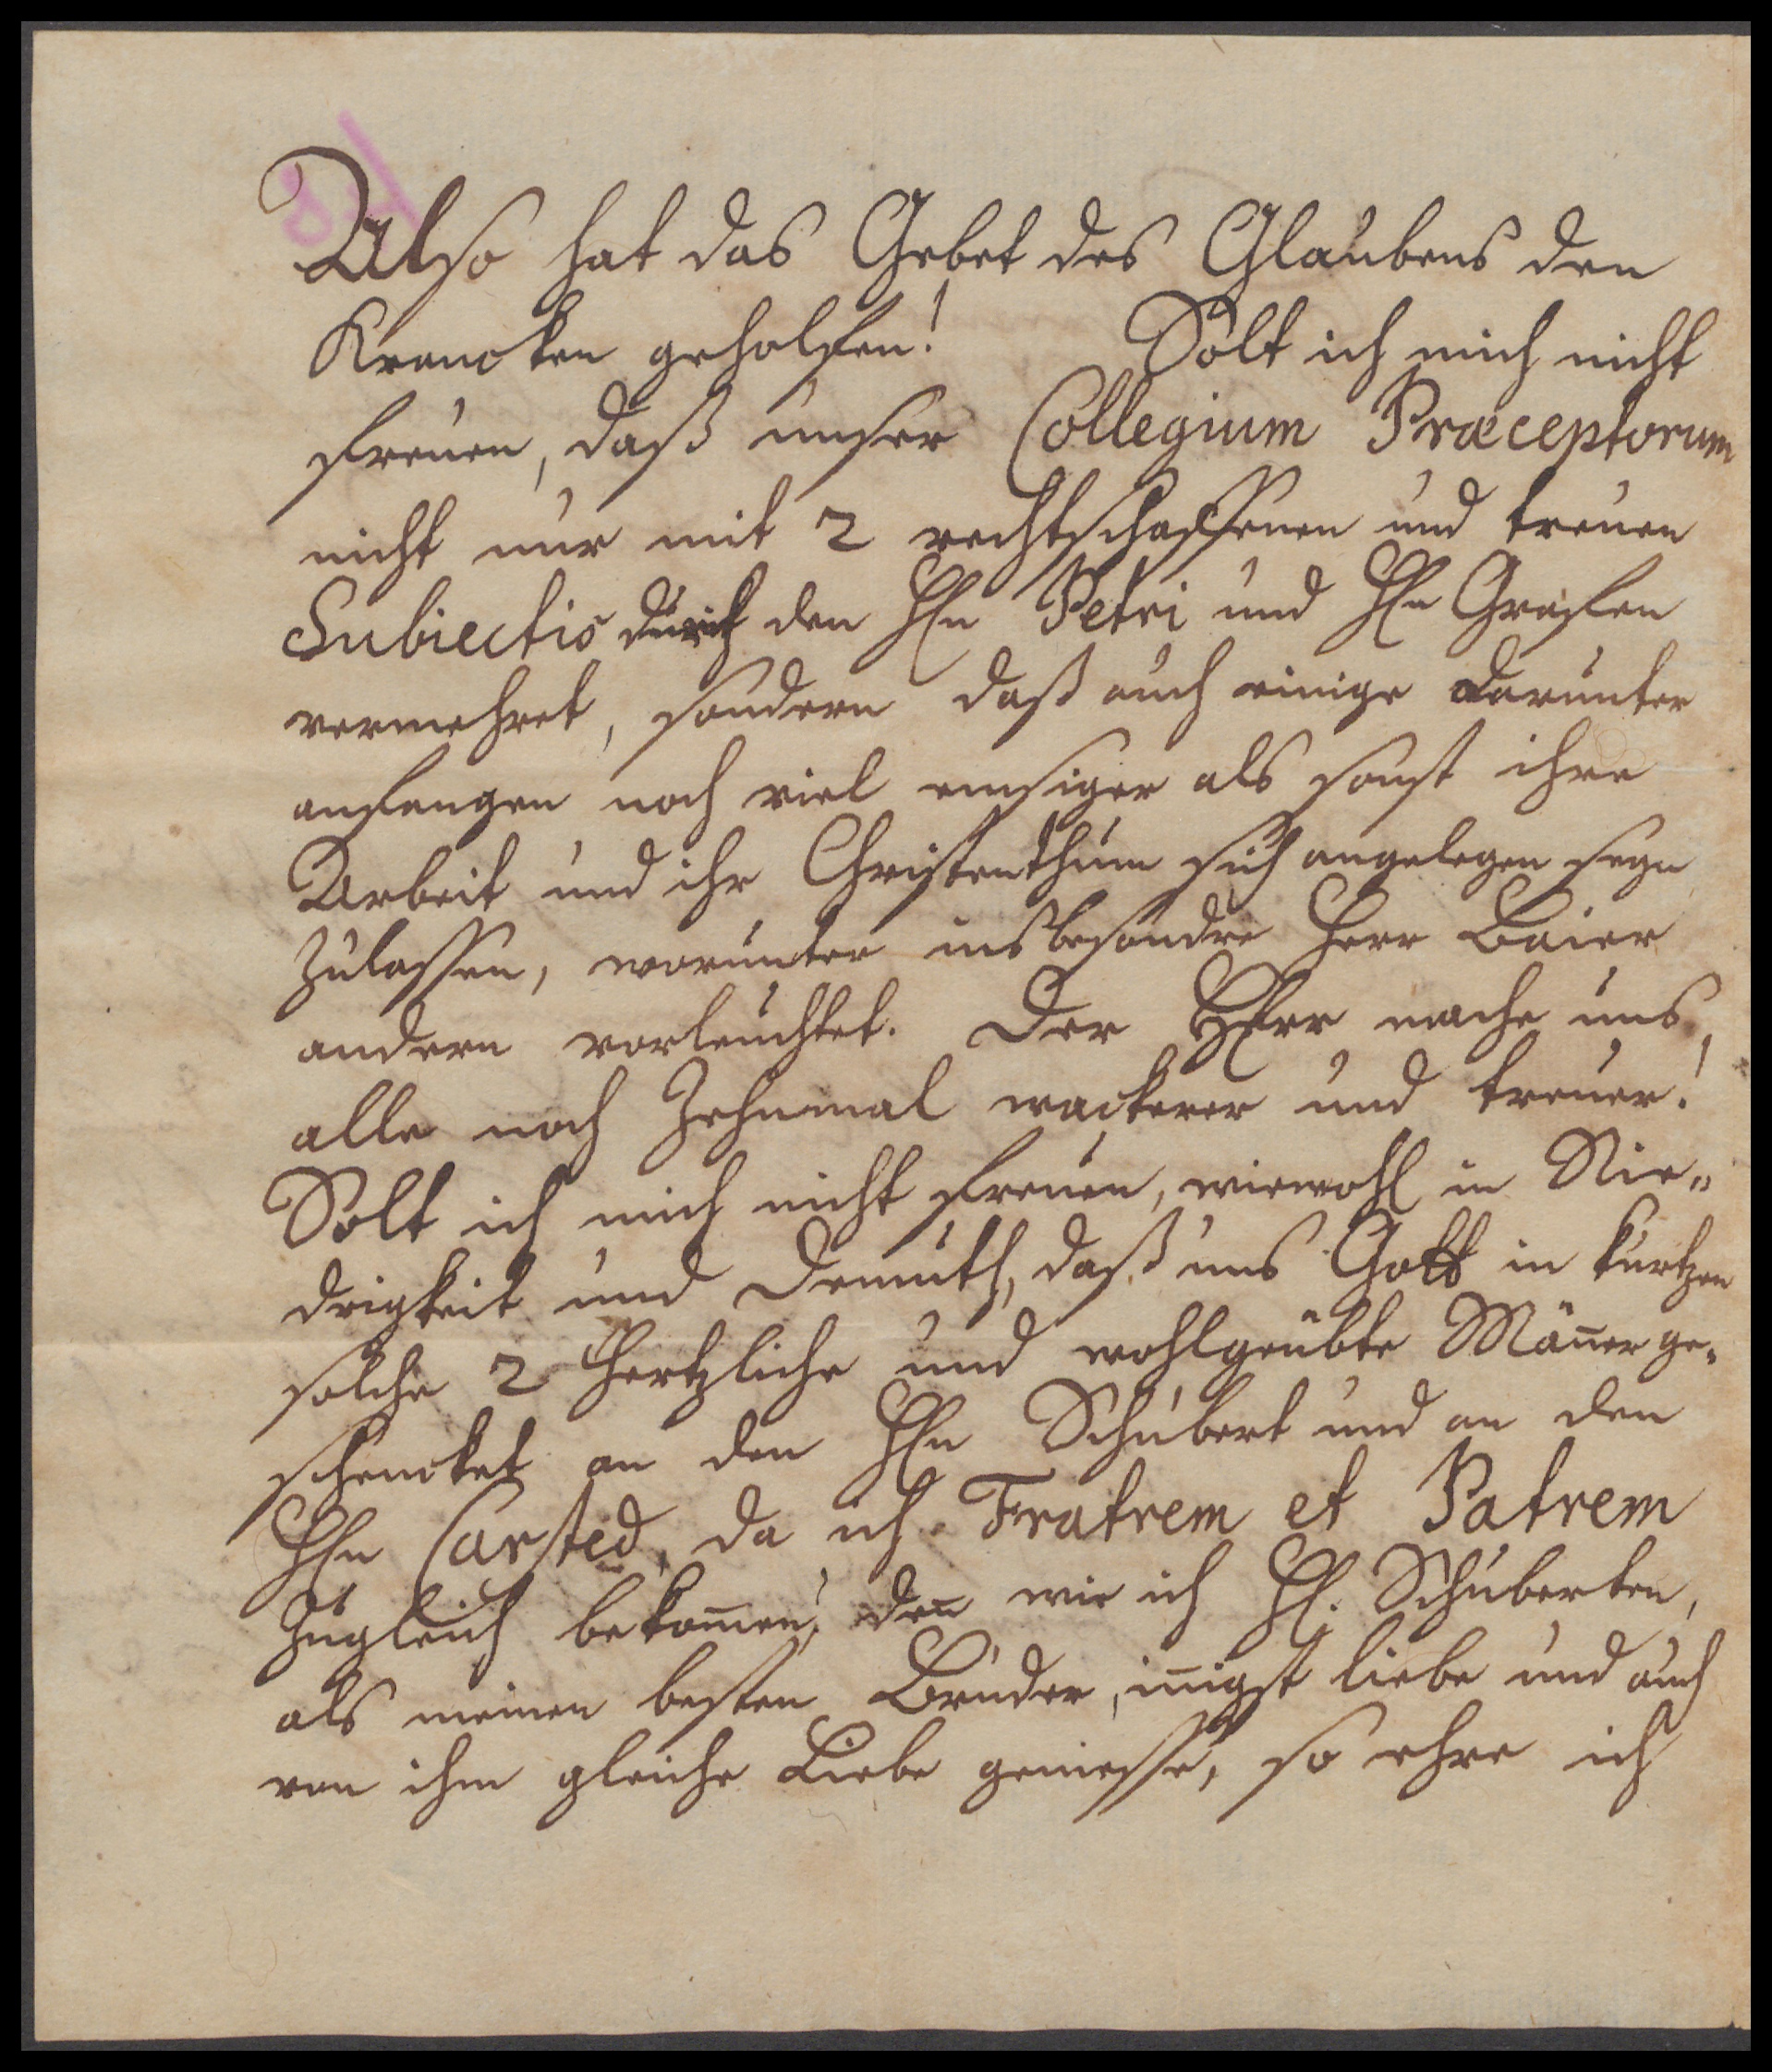 Also hat das Gebet des Glaubens den
Krancken geholfen! Solt ich mich nicht
freuen, daß unser Collegium Præceptorum
nicht nur mit 2 rechtschaffenen und treuen
Subiectis durch den Hln Petri und Hln Grafen
vermehret, sondern daß auch einige darunter
anfangen noch viel emsiger als sonst ihre
Arbeit und ihr Christenthum sich angelegen seyn
zulassen, worunter insbesondre Herr Baier
andern vorleuchtet. Der HErr mache uns
alle noch Zehnmal wackerer und treuer!
Solt ich mich nicht freuen, wiewohl in Nie-
drigkeit und Demuth, daß uns Gott in kurtzen
solche 2 Hertzliche und wohlgeübte Mäñer ge-
schencket an den Hln Schubert und an den
Hln Carsted, da ich Fratrem et Patrem
zugleich bekom̃en, deñ wie ich Hl. Schuberten,
als meinen besten Bruder, iñigst liebe und auch
von ihm gleiche Liebe geniesse, so ehre ich